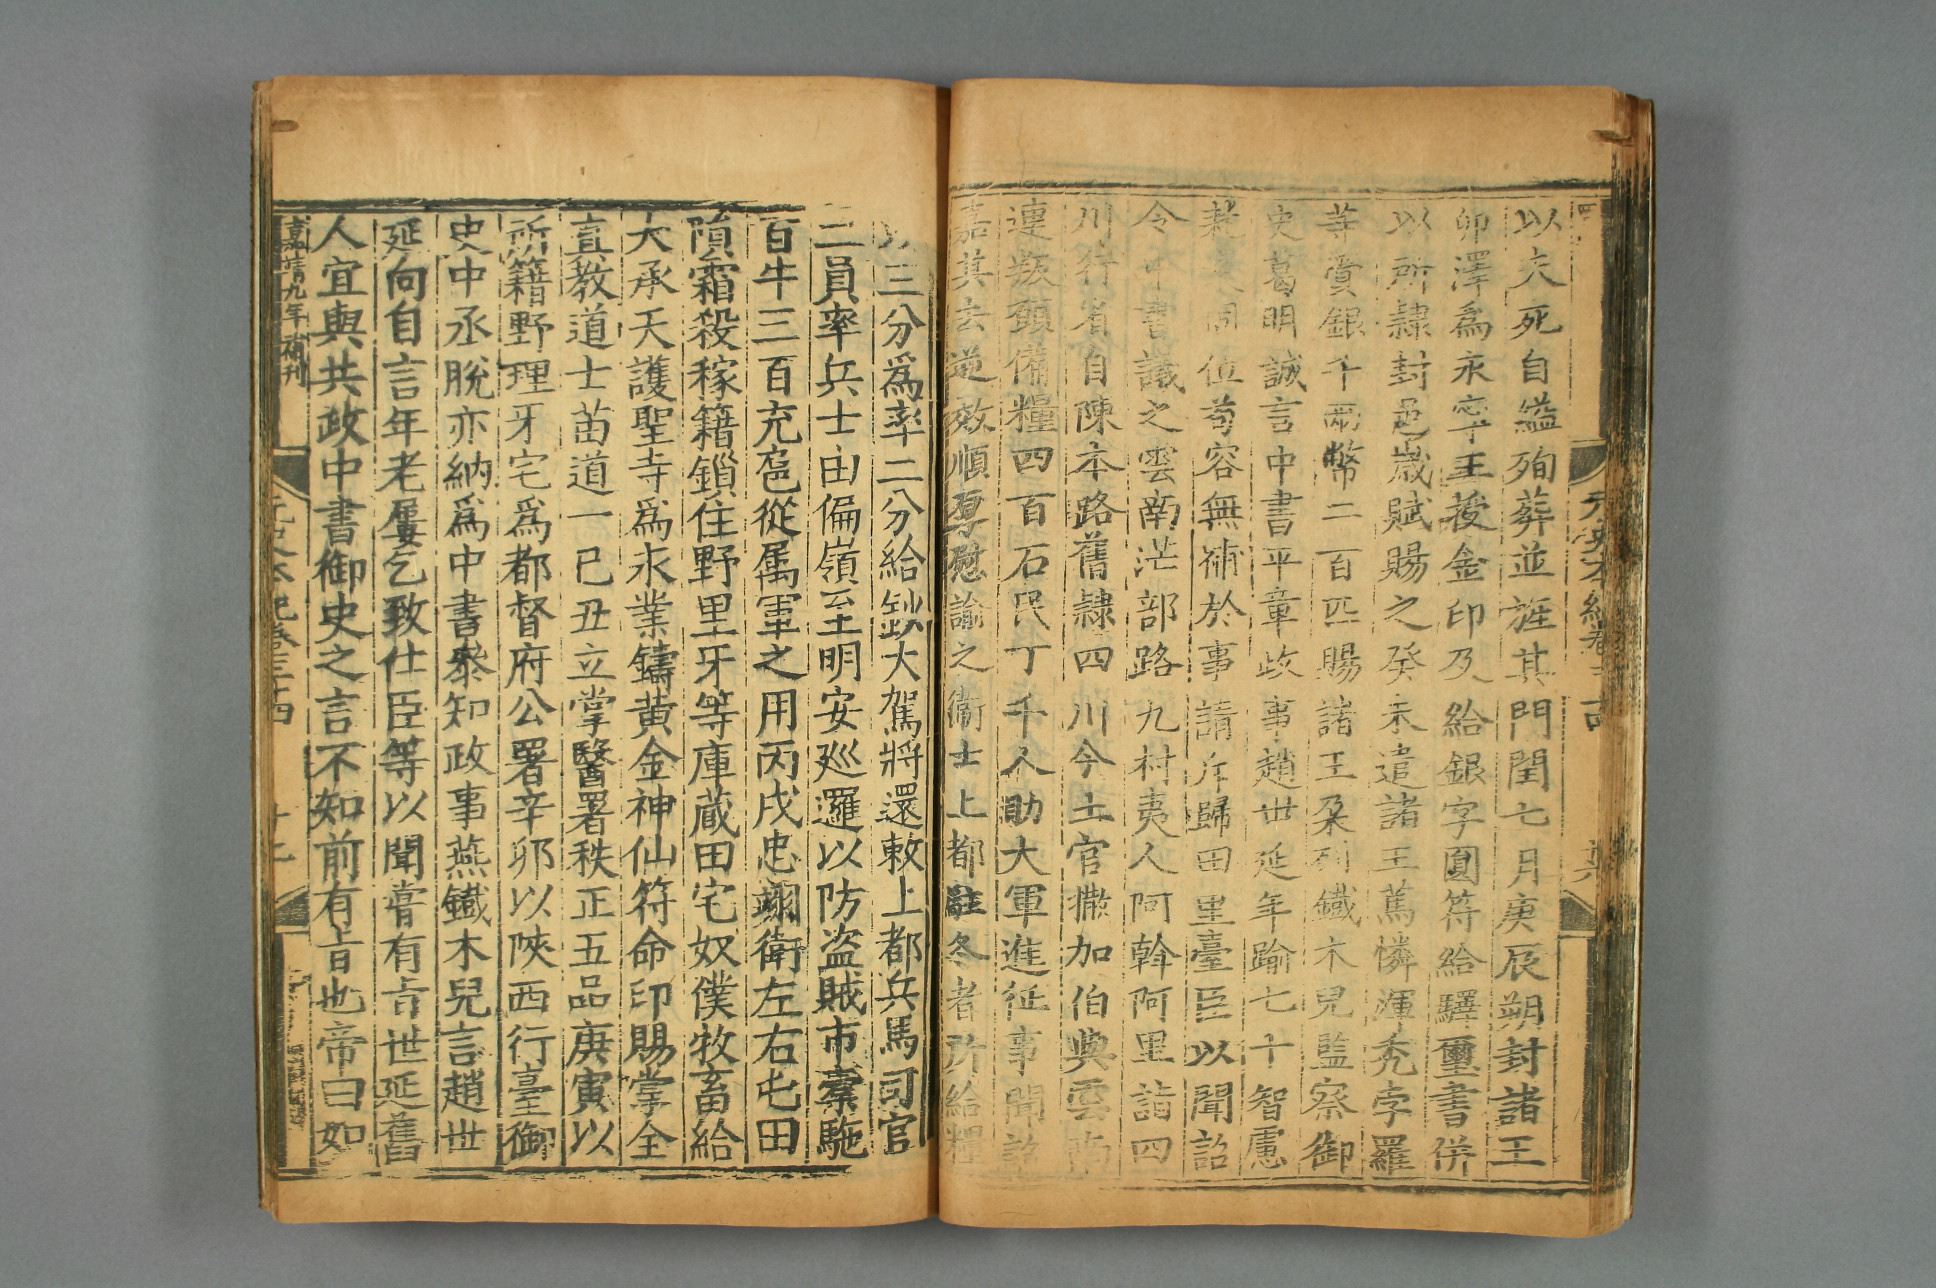 以夫死自縊殉葬並旌其門閏七月庚辰朔封諸王
卯澤爲永寧王授金印及給銀字圓符給驛璽書併
以所隷封邑歲賦賜之癸未遣諸王篤憐渾禿孛羅
等賫銀千兩幣二百匹賜諸王朶列鐵木兒監察御
史葛明誠言中書平章政事趙世延年踰七十智慮
耗 固位苟容無補於事請斥歸田里臺臣以聞詔
令中書議之雲南茫部路九村夷人阿斡阿里詣四
川行省自陳本路舊隷四川今土官撒加伯與雲南
連叛願備糧四百石民丁千人助大軍進征事聞詔
嘉其去逆效順厚慰諭之衞士上都駐冬者所給糧
以三分爲率二分給鈔大駕將還敕上都兵馬司官
二員率兵士由偏嶺至明安廵邏以防盜賊市橐駞
百牛三百充扈從属軍之用丙戌忠翊衛左右屯田
隕霜殺稼籍鎖住野里牙等庫蔵田宅奴僕牧畜給
大承天護聖寺爲永業鑄黄金神仙符命印賜掌全
眞教道士苗道一己丑立掌醫署秩正五品庚寅以
所籍野理牙宅爲都督府公署辛卯以陝西行臺御
史中丞脫亦納爲中書叅知政事燕鐵木兒言趙世
延向自言年老屢乞致仕臣等以聞嘗有㫖世延舊
人宜與共政中書御史之言不知前有㫖也帝曰如
嘉靖九年補刊
元史本紀卷三十四